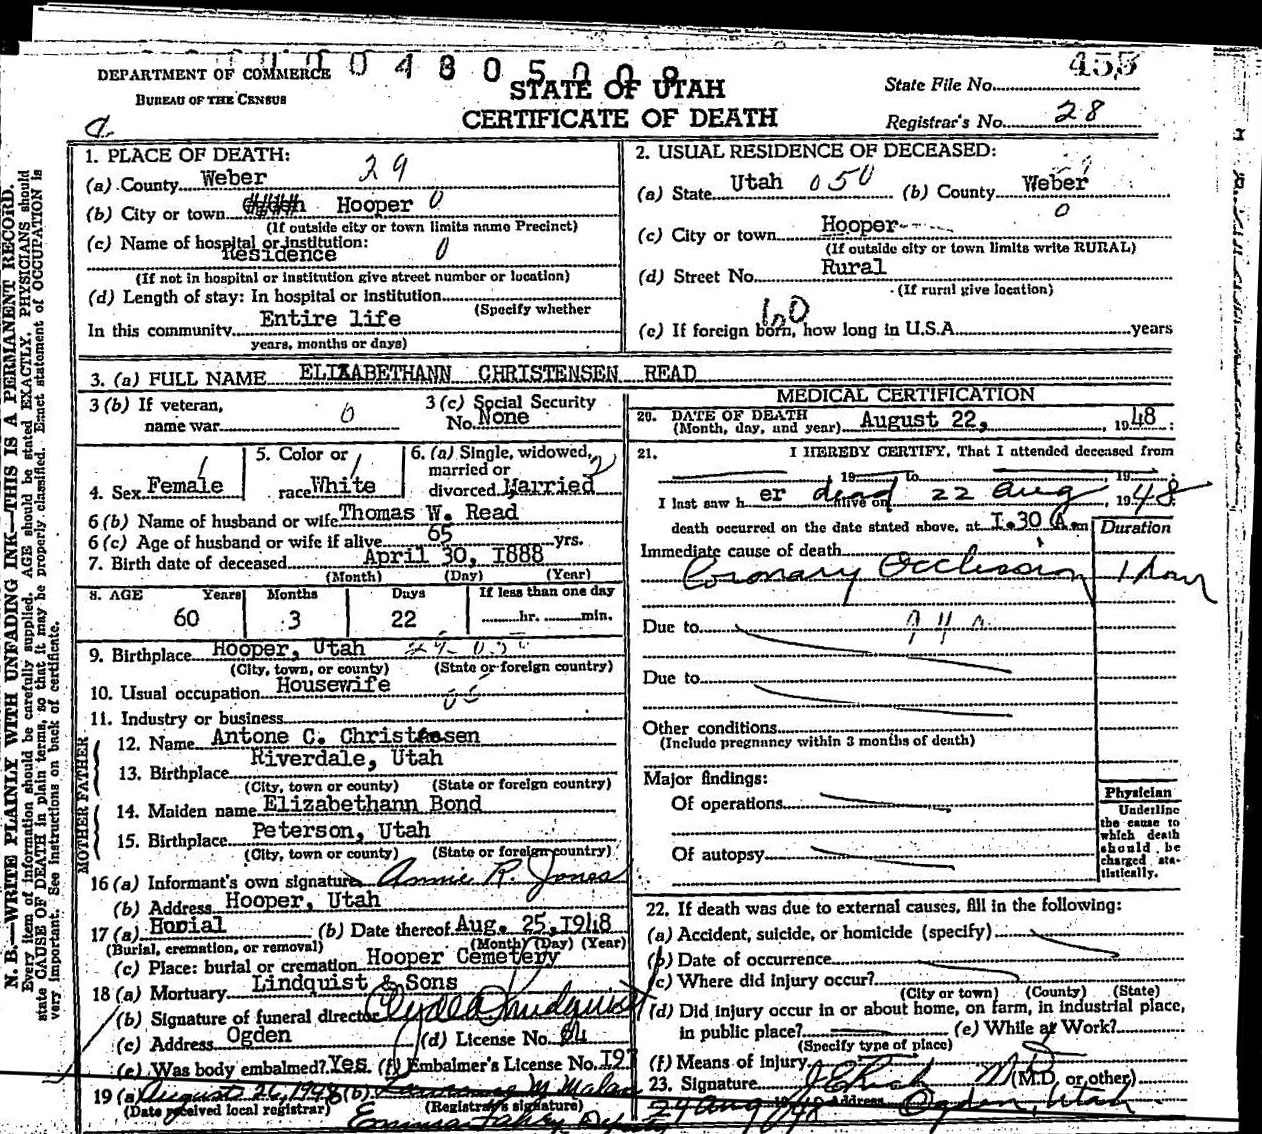 0 0 4 8 0 5 0 0 0 9
DEPARTMENT OF COMMERCE
BUREAU OF THE CENSUS
STATE OF UTAH
CERTIFICATE OF DEATH
State File No. 455
Registrar's No. 28
1. PLACE OF DEATH: 29
(a) County Weber
(b) City or town Hooper 0
(If outside city or town limits name Precinct)
(c) Name of hospital or institution:
Residence 0
(If not in hospital or institution give street number or location)
(d) Length of stay: In hospital or institution
(Specify whether
In this community Entire life
years, months or days)
2. USUAL RESIDENCE OF DECEASED:
(a) State Utah 050 (b) County Weber
0
(c) City or town Hooper
(If outside city or town limits write RURAL)
(d) Street No. Rural
(If rural give location)
(e) If foreign born, how long in U.S.A. years
3. (a) FULL NAME ELIZABETHANN CHRISTENSEN READ
3 (b) If veteran,
name war 0
3 (c) Social Security
No. None
4. Sex Female
5. Color or
race White
6. (a) Single, widowed, 2
married or
divorced Married
6 (b) Name of husband or wife Thomas W. Read
6 (c) Age of husband or wife if alive 65 yrs.
7. Birth date of deceased April 30, 1888
(Month) (Day) (Year)
8. AGE Years Months Days If less than one day
60 3 22 hr. min.
9. Birthplace Hooper, Utah
(City, town, or county) (State or foreign country)
10. Usual occupation Housewife
11. Industry or business
FATHER
12. Name Antone C. Christensen
13. Birthplace Riverdale, Utah
(City, town or county) (State or foreign country)
MOTHER
14. Maiden name Elizabethann Bond
15. Birthplace Peterson, Utah
(City, town or county) (State or foreign country)
16 (a) Informant's own signature Annie R. Jones
(b) Address Hooper, Utah
17 (a) Borial (b) Date thereof Aug. 25, 1948
(Burial, cremation, or removal) (Month) (Day) (Year)
(c) Place: burial or cremation Hooper Cemetery
18 (a) Mortuary Lindquist & Sons
(b) Signature of funeral director Clyde Lindquist
(c) Address Ogden (d) License No.
(e) Was body embalmed? Yes (f) Embalmer's License No. 197
19 (a) August 26, 1948 (b) Lawrence M. Malan
(Date received local registrar) (Registrar's signature)
Deputy
MEDICAL CERTIFICATION
20. DATE OF DEATH
(Month, day, and year) August 22, 1948
21. I HEREBY CERTIFY, That I attended deceased from
19 to 19
I last saw her dead alive on 22 Aug, 1948
death occurred on the date stated above, at 1.30 A m
Duration
Immediate cause of death
Coronary Occlusion 1 hour
Due to
Due to
Other conditions
(Include pregnancy within 3 months of death)
Major findings:
Of operations
Of autopsy
Physician
Underline
the cause to
which death
should be
charged sta-
tistically.
22. If death was due to external causes, fill in the following:
(a) Accident, suicide, or homicide (specify)
(b) Date of occurrence
(c) Where did injury occur?
(City or town) (County) (State)
(d) Did injury occur in or about home, on farm, in industrial place,
in public place? (e) While at Work?
(Specify type of place)
(f) Means of injury
23. Signature M.D. (M.D. or other)
24 Aug 1948 Address Ogden, Utah
N. B.—WRITE PLAINLY WITH UNFADING INK—THIS IS A PERMANENT RECORD.
Every item of information should be carefully supplied. AGE should be stated EXACTLY. PHYSICIANS should
state CAUSE OF DEATH in plain terms, so that it may be properly classified. Exact statement of OCCUPATION is
very important. See instructions on back of certificate.